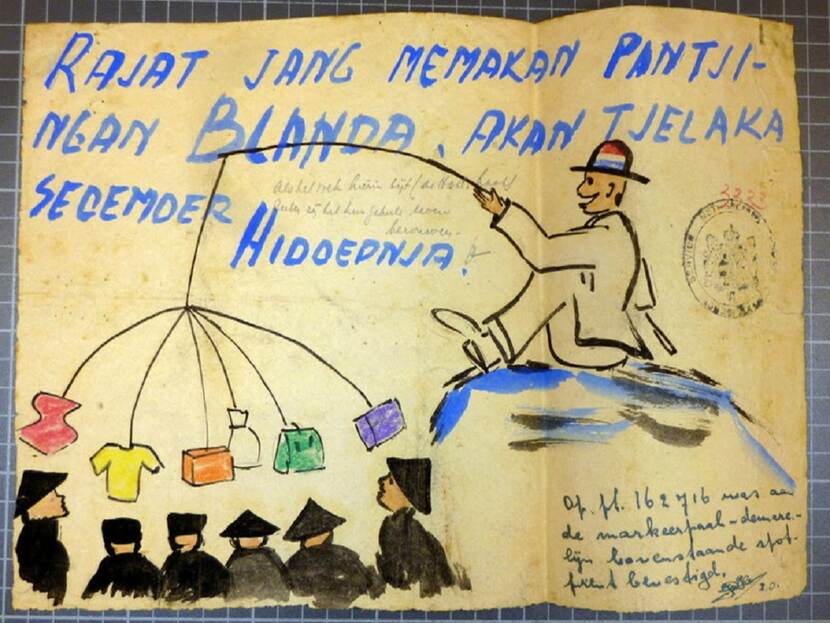 RAJAT JANG MEMAKAN PANTJI-
NGAN BLANDA, AKAN TJELAKA
SEOEMOER
HIDOEPNJA.
Als het volk hierin bijt
zullen zij het hun geheele leven
berouwen.
3233
Op pl. 162716 was aan
de markeerpaal-demarc-
lijn bovenstaande spot-
prent bevestigd.